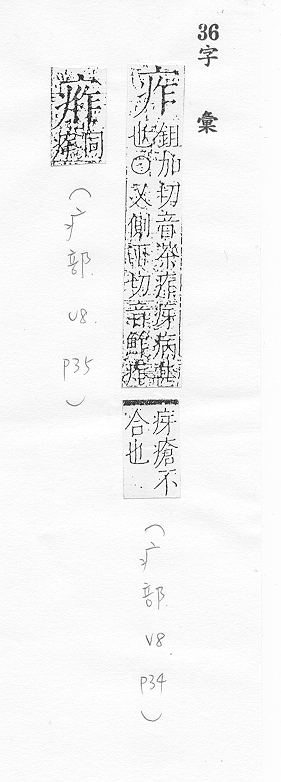 36字 彙
痄
鉏加切音茶痄疨病甚
也○又側切音鮓痄
疨瘡不
合也
（疒部 v8. p34）
同
痄
（疒部 v8. p35）